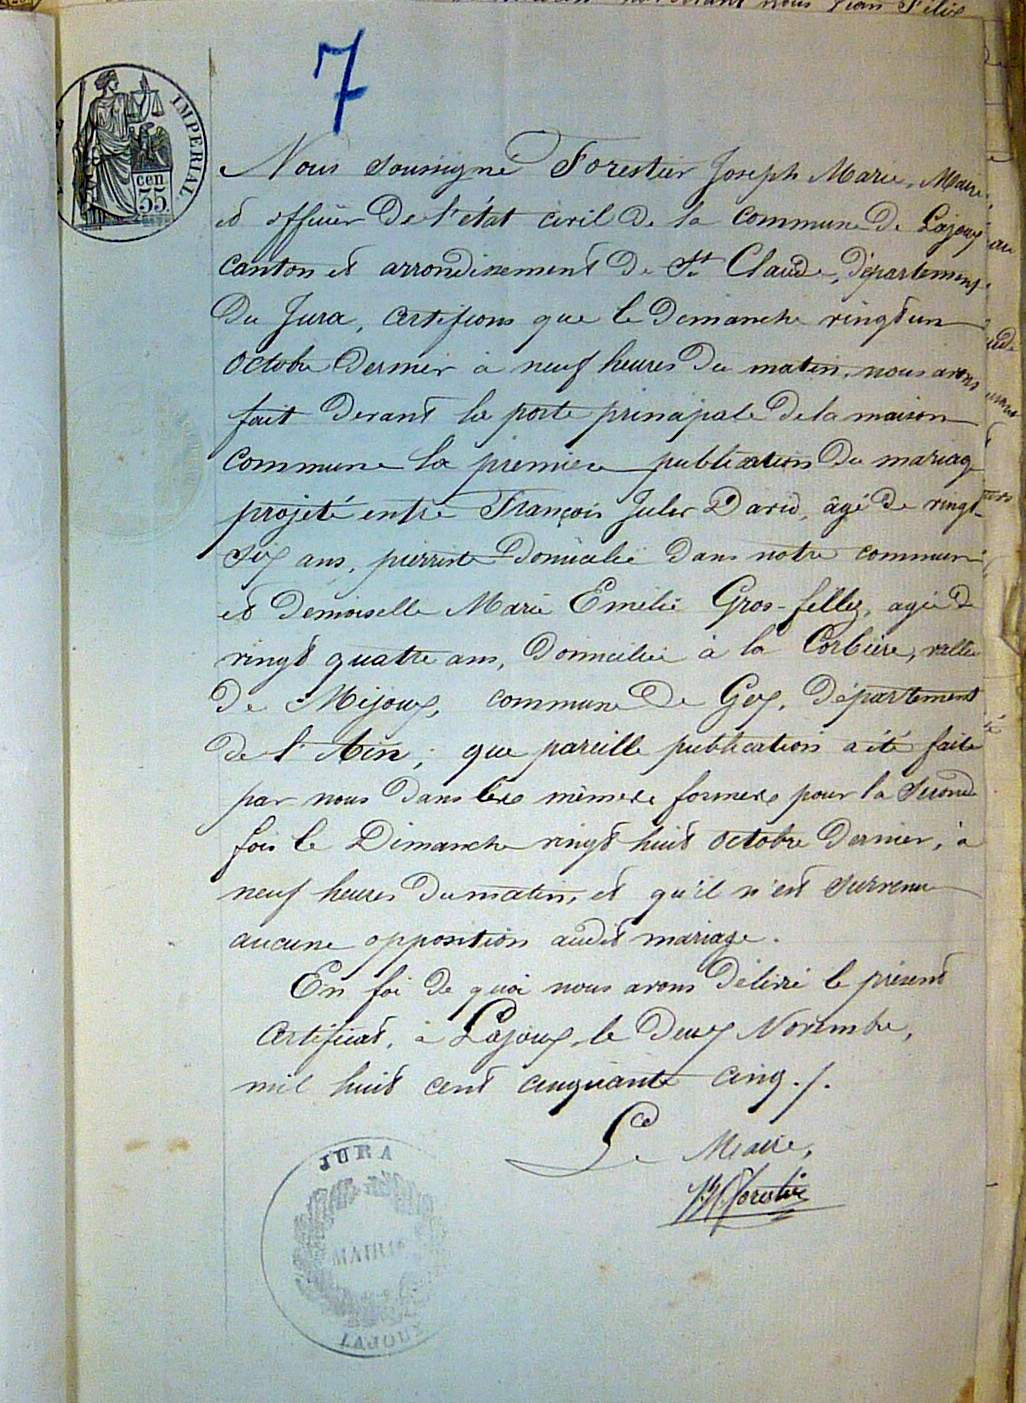 7
IMPERIAL
cen
35
Nous soussigné Forestier Joseph Marie, Maire
et officier de l'état civil de la commune de Lajoux
canton et arrondissement de St Claude, département
du Jura, certifions que le dimanche vingt un
octobre dernier à neuf heures du matin, nous avons
fait devant la porte principale de la maison
commune la première publication du mariage
projeté entre François Jules David, âgé de vingt-
six ans, pierriste domicilié dans notre commune
et demoiselle Marie Emélie Gros-fillez, agée de
vingt quatre ans, domiciliée à la Corbière, vallée
de Mijoux, commune de Gex, département
de l'Ain ; que pareille publication a été faite
par nous dans les mêmes formes pour la seconde
fois le Dimanche vingt huit octobre dernier, à
neuf heures du matin, et qu'il n'est survenu
aucune opposition audit mariage.
En foi de quoi nous avons délivré le présent
certificat, à Lajoux, le deux Novembre,
mil huit cent cinquante cinq ./.
Le Maire,
Forestier
JURA
MAIRIE
LAJOUX